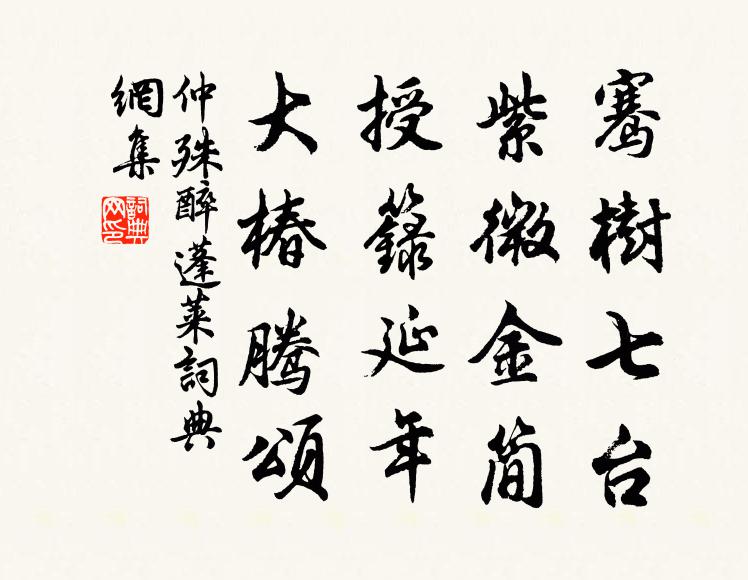 騫樹七台
紫微金简
授籙延年
大椿騰頌
仲殊醉蓬萊詞典
網集
詞典
网印